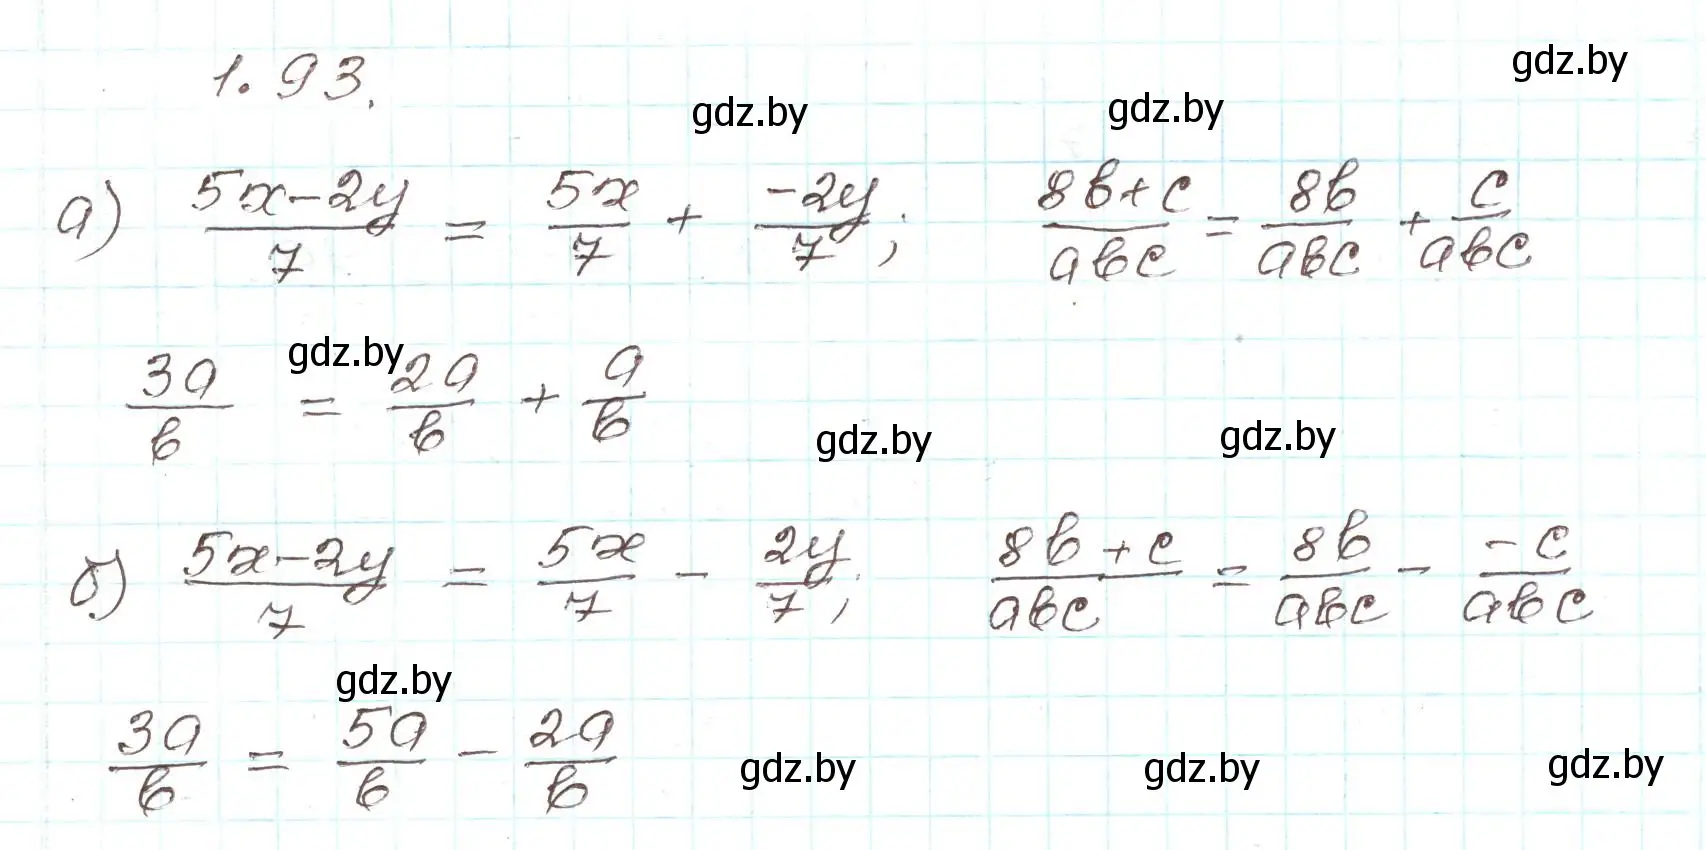 gdz.by
1.93.
gdz.by gdz.by
а) \frac{5x-2y}{7} = \frac{5x}{7} + \frac{-2y}{7}; \frac{8b+c}{abc} = \frac{8b}{abc} + \frac{c}{abc}
gdz.by
\frac{3a}{b} = \frac{2a}{b} + \frac{a}{b}
gdz.by gdz.by
б) \frac{5x-2y}{7} = \frac{5x}{7} - \frac{2y}{7}; \frac{8b+c}{abc} = \frac{8b}{abc} - \frac{-c}{abc}
gdz.by
\frac{3a}{b} = \frac{5a}{b} - \frac{2a}{b}
gdz.by gdz.by gdz.by